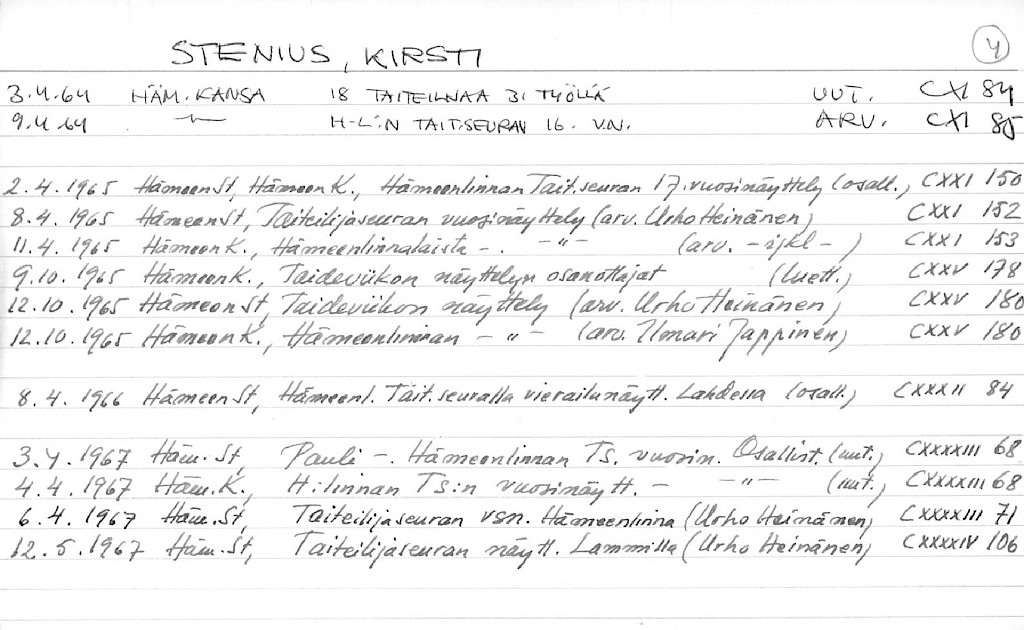 STENIUS, KIRSTI 4
3.4.64 HÄM. KANSA 18 TAITEILIJAA 31 TYÖLLÄ UUT. CXI 84
9.4.64 –"– H-L:N TAIT.SEURAN 16. V.N. ARV. CXI 85
2.4.1965 Hämeen St, Hämeen K., Hämeenlinnan Tait.seuran 17.vuosinäyttely (osall.) CXXI 150
8.4.1965 Hämeen St, Taiteilijaseuran vuosinäyttely (arv. Urho Heinänen) CXXI 152
11.4.1965 Hämeen K., Hämeenlinnalaista -. –"– (arv. -ijkl-) CXXI 153
9.10.1965 Hämeen K., Taideviikon näyttelyn osanottajat (luett.) CXXV 178
12.10.1965 Hämeen St, Taideviikon näyttely (arv. Urho Heinänen) CXXV 180
12.10.1965 Hämeen K., Hämeenlinnan –"– (arv. Ilmari Jappinen) CXXV 180
8.4.1966 Hämeen St, Hämeenl. Tait.seuralla vierailunäytt. Lahdessa (osall.) CXXXII 84
3.4.1967 Häm. St, Pauli -. Hämeenlinnan TS. vuosin. Osallist. (uut.) CXXXXIII 68
4.4.1967 Häm. K., H:linnan TS:n vuosinäytt. - –"– (uut.) CXXXXIII 68
6.4.1967 Häm. St, Taiteilijaseuran vsn. Hämeenlinna (Urho Heinänen) CXXXXIII 71
12.5.1967 Häm. St, Taiteilijaseuran näytt. Lammilla (Urho Heinänen) CXXXXIV 106